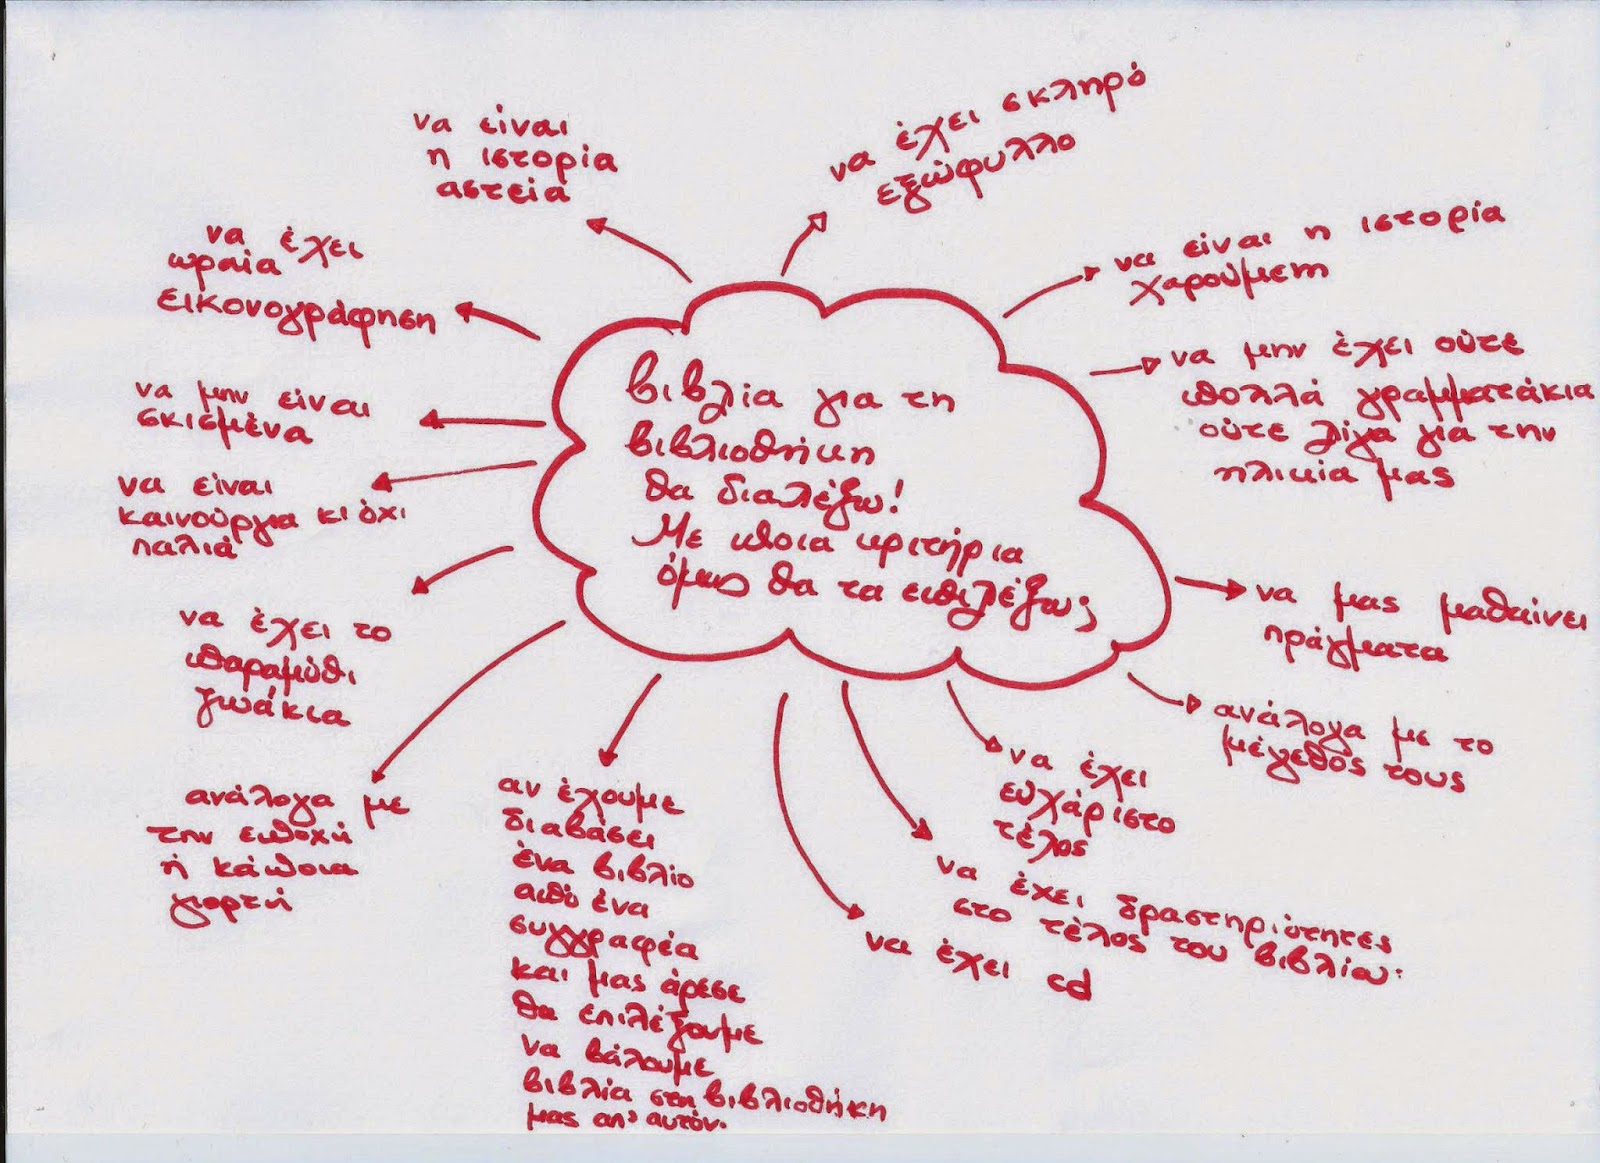 βιβλία για τη
βιβλιοθήκη
θα διαλέξω!
Με ποια κριτήρια
όμως θα τα επιλέξω;
να είναι
η ιστορία
αστεία
να έχει σκληρό
εξώφυλλο
να είναι η ιστορία
χαρούμενη
να μην έχει ούτε
πολλά γραμματάκια
ούτε λίγα για την
ηλικία μας
να μας μαθαίνει
πράγματα
ανάλογα με το
μέγεθός τους
να έχει
ευχάριστο
τέλος
να έχει δραστηριότητες
στο τέλος του βιβλίου.
να έχει cd
αν έχουμε
διαβάσει
ένα βιβλίο
από ένα
συγγραφέα
και μας άρεσε
θα επιλέξουμε
να βάλουμε
βιβλία στη βιβλιοθήκη
μας απ' αυτόν.
ανάλογα με
την εποχή
ή κάποια
γιορτή
να έχει το
παραμύθι
ζωάκια
να είναι
καινούργια κι όχι
παλιά
να μην είναι
σκισμένα
να έχει
ωραία
εικονογράφηση